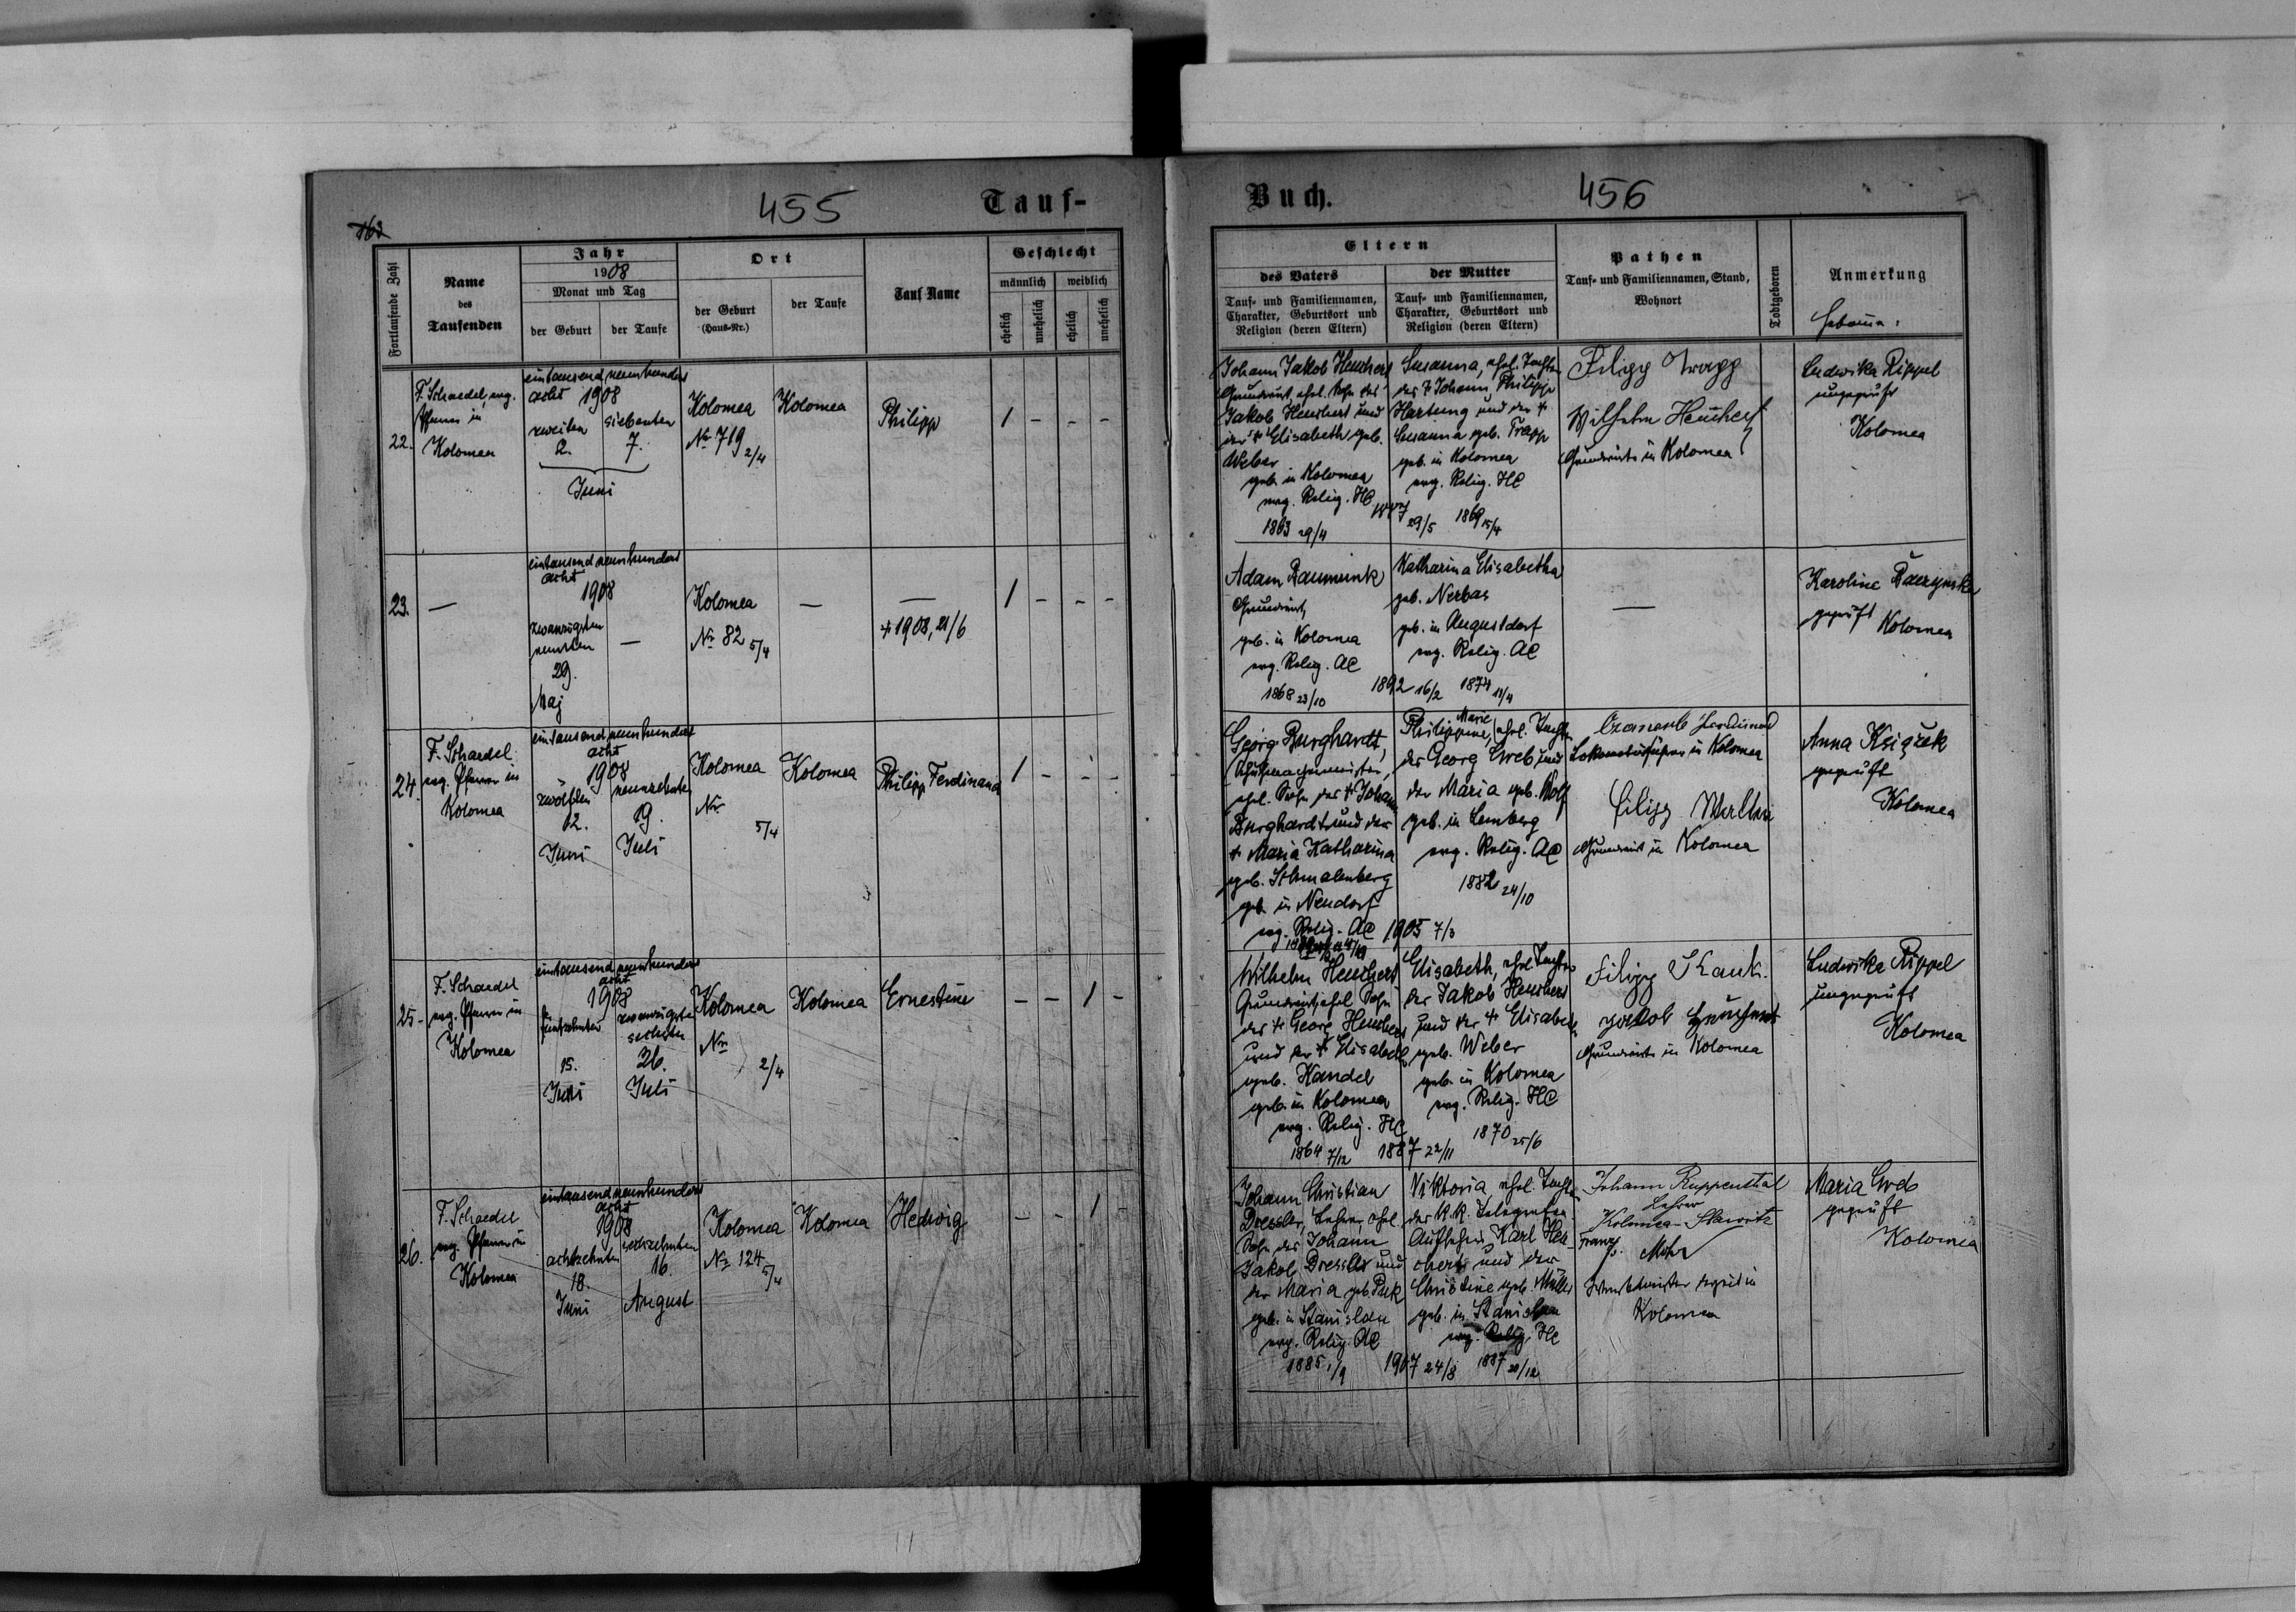 455
Tauf-
162
Fortlaufende Zahl
Name
des
Taufenden
Jahr
1908
Monat und Tag
der Geburt
der Taufe
Ort
der Geburt
(Haus-Nr.)
der Taufe
Tauf Name
Geschlecht
männlich
weiblich
ehelich
unehelich
ehelich
unehelich
22.
F. Schaedel, evg.
Pfarrer in
Kolomea
eintausend neunhundert
acht 1908
zweiten
2.
siebenten
7.
Juni
Kolomea
No 719 2/4
Kolomea
Philipp
1 - - -
23.
—
eintausend neunhundert
acht
1908
zwanzigsten
neunten
29.
Maj
—
Kolomea
No 82 5/4
—
—
+ 1908, 21/6
1 - - -
24.
F. Schaedel
evg. Pfarrer in
Kolomea
eintausend neunhundert
acht
1908
zwölften
12.
Juni
neunzehnten
19.
Juli
Kolomea
Nr
5/4
Kolomea
Philipp Ferdinand
1 - - -
25.
F. Schaedel
evg. Pfarrer in
Kolomea
eintausend neunhundert
acht
1908
fünfzehnten
15.
Juni
zwanzigsten
sechsten
26.
Juli
Kolomea
Nr
2/4
Kolomea
Ernestine
- - 1 -
26.
F. Schaedel
evg. Pfarrer in
Kolomea
eintausend neunhundert
acht
1908
achtzehnten
18.
Juni
sechzehnten
16.
August
Kolomea
No 124 5/4
Kolomea
Hedwig
- - 1 -
Buch.
456
Eltern
des Vaters
Tauf- und Familiennamen,
Charakter, Geburtsort und
Religion (deren Eltern)
der Mutter
Tauf- und Familiennamen,
Charakter, Geburtsort und
Religion (deren Eltern)
Pathen
Tauf- und Familiennamen, Stand,
Wohnort
Todtgeboren
Anmerkung
Johann Jakob Heuchert
Grundwirt ehel. Sohn des
Jakob Heuchert und
der + Elisabeth geb.
Weber
geb. in Kolomea
evg. Relig. HC
1863 29/4
29/5
Susanna, ehel. Tochter
des + Johann Philipp
Hartung und der +
Susanna geb. Trapp
geb. in Kolomea
evg. Relig. HC
1869 15/4
Filipp Trapp
Wilhelm Heuchert
Grundwirte in Kolomea
Ludwika Rippel
ungeprüft
Kolomea
Adam Baumunk
Grundwirt
geb. in Kolomea
evg. Relig. AC
1868 23/10
1892 16/2
Katharina Elisabetha
geb. Nerbas
geb. in Augustdorf
evg. Relig. AC
1874 11/4
—
Karoline
geprüft
Kolomea
Georg Burghardt,
ehel. Sohn des + Johann
Burghardt und der
+ Maria Katharina
geb. Schmalenberg
geb. in Neudorf
evg. Relig. AC
1905 7/3
Marie
Philippine, ehel. Tochter
des Georg Eweb und
der Maria geb. Wolf
geb. in Lemberg
evg. Relig. AC
1882 24/10
Ferdinand
Lokomotivführer in Kolomea
Filipp
Grundwirt in Kolomea
Anna Książek
geprüft
Kolomea
Wilhelm Heuchert
Grundwirt, ehel. Sohn
des + Georg Heuchert
und der + Elisabeth
geb. Kandel
geb. in Kolomea
evg. Relig. HC
1864 7/12
1887 22/11
Elisabeth, ehel. Tochter
des Jakob Heuchert
und der + Elisabeth
geb. Weber
geb. in Kolomea
evg. Relig. HC
1870 25/6
Filipp
Jakob Heuchert
Grundwirte in Kolomea
Ludwika Rippel
ungeprüft
Kolomea
Johann Christian
Dressler, Lehrer, ehel.
Sohn des Johann
Jakob Dressler und
der Maria geb. Puk
geb. in Stanislau
evg. Relig. AC
1885 1/9
1907 24/8
Viktoria, ehel. Tochter
des k.k. Telegrafen
Aufsehers Karl Heu-
chert und der
Christine geb. Müller
geb. in Stanislau
evg. Relig. HC
1887 28/12
Johann Ruppenthal
Lehrer
Kolomea-Slawitz
Franz Mohr
Kolomea
Maria
geprüft
Kolomea